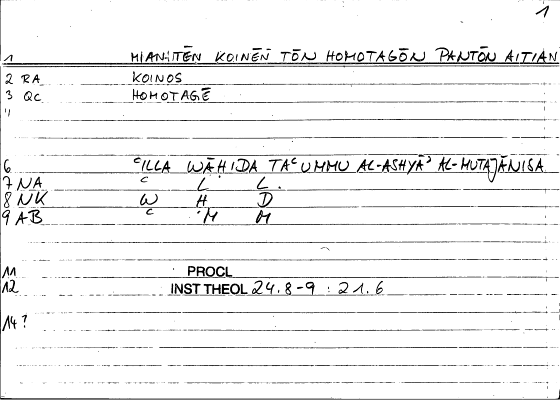 1
1 MIAN ̇TEN KOINĒN TŌN HOMOTAGŌN PANTŌN AITIAN
2 RA KOINOS
3 QC HOMOTAGĒ
4
6 ʿILLA WĀḤIDA TAʿUMMU AL-ASHYĀʾ AL-MUTAJĀNISA
7 NA ʿ L L
8 NK W Ḥ D
9 AB ʿ M M
11 PROCL
12 INST THEOL 24.8-9 : 21.6
14?